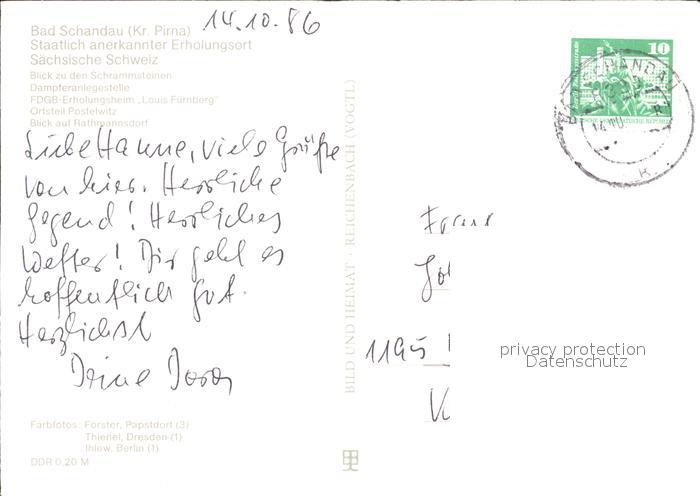 14.10.86
Bad Schandau (Kr. Pirna)
Staatlich anerkannter Erholungsort
Sächsische Schweiz
Blick zu den Schrammsteinen
Dampferanlegestelle
FDGB-Erholungsheim „Louis Fürnberg"
Ortsteil Postelwitz
Blick auf Rathmannsdorf
Liebe Hanne, viele Grüße
von hier. Herrliche
Gegend! Herrliches
Wetter! Dir geht es
hoffentlich gut.
Herzlichst
Deine
Farbfotos: Förster, Papstdorf (3)
Thienel, Dresden (1)
Ihlow, Berlin (1)
DDR 0,20 M
BILD UND HEIMAT · REICHENBACH (VOGTL)
10
BAD SCHANDAU
1195
privacy protection
Datenschutz